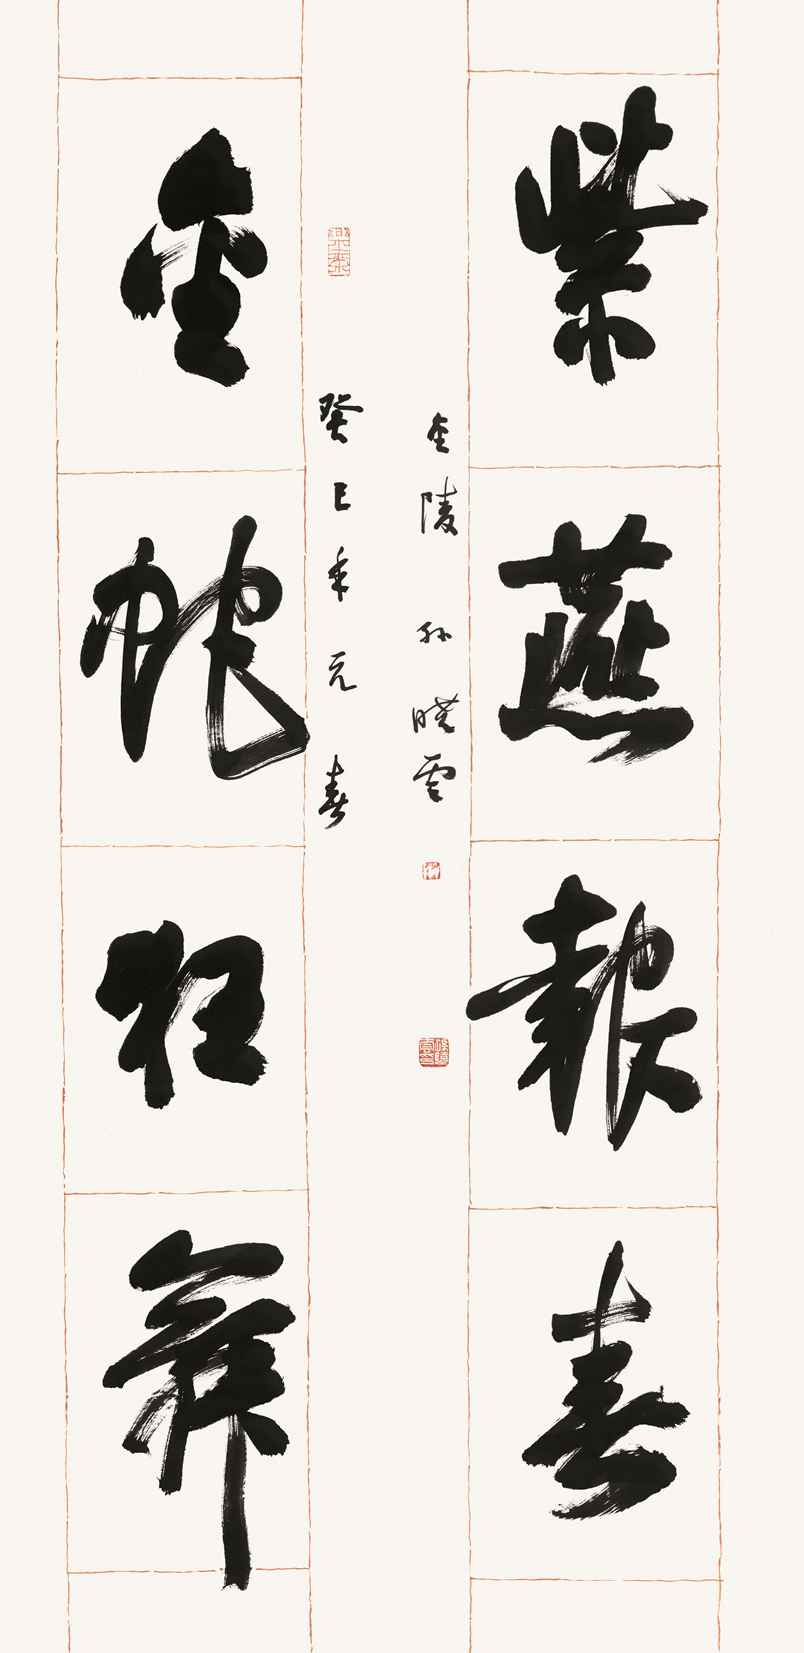 紫燕報春
金蛇狂舞
癸巳年元春
金陵孙晓雲